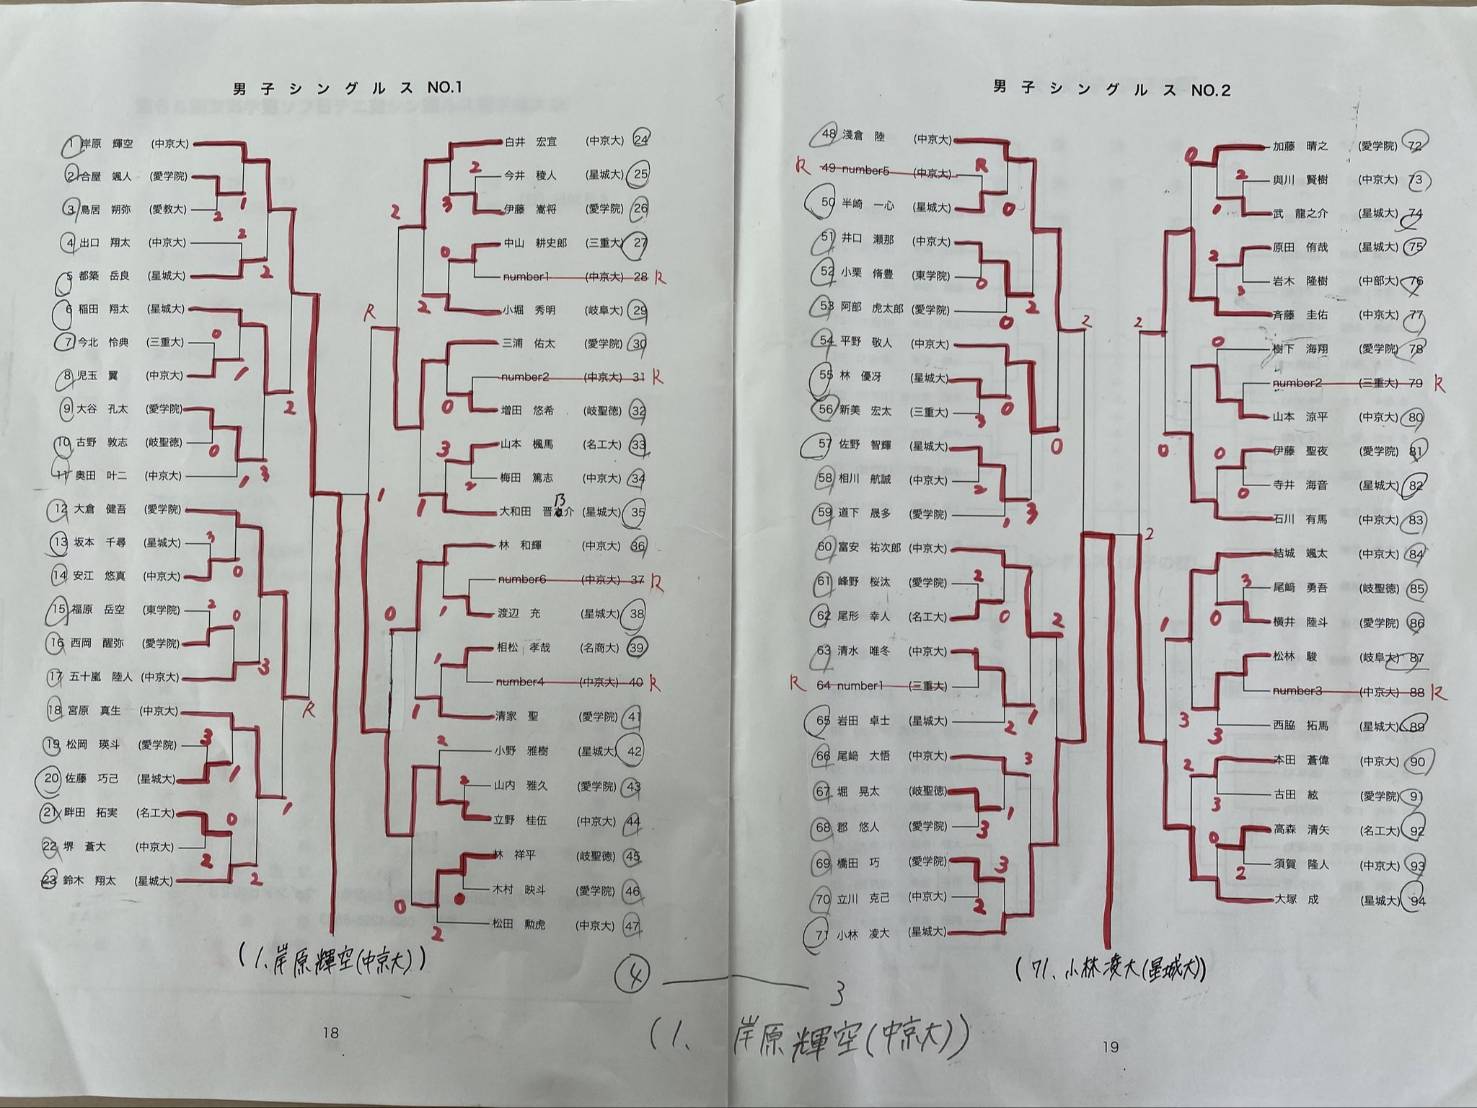 男 子 シ ン グ ル ス NO.1
1 岸原 輝空 (中京大)
2 合屋 颯人 (愛学院)
3 鳥居 朔弥 (愛教大)
4 出口 翔太 (中京大)
5 都築 岳良 (星城大)
6 稲田 翔太 (星城大)
7 今北 怜典 (三重大)
8 児玉 翼 (中京大)
9 大谷 孔太 (愛学院)
10 古野 敦志 (岐聖徳)
11 奥田 叶二 (中京大)
12 大倉 健吾 (愛学院)
13 坂本 千尋 (星城大)
14 安江 悠真 (中京大)
15 福原 岳空 (東学院)
16 西岡 醒弥 (愛学院)
17 五十嵐 陸人 (中京大)
18 宮原 真生 (中京大)
19 松岡 瑛斗 (愛学院)
20 佐藤 巧己 (星城大)
21 畔田 拓実 (名工大)
22 堺 蒼大 (中京大)
23 鈴木 翔太 (星城大)
白井 宏宜 (中京大) 24
今井 稜人 (星城大) 25
伊藤 嵩将 (愛学院) 26
中山 耕史郎 (三重大) 27
number1 (中京大) 28 R
小堀 秀明 (岐阜大) 29
三浦 佑太 (愛学院) 30
number2 (中京大) 31 R
増田 悠希 (岐聖徳) 32
山本 楓馬 (名工大) 33
梅田 篤志 (中京大) 34
大和田 晋介 (星城大) 35
林 和輝 (中京大) 36
number6 (中京大) 37 R
渡辺 充 (星城大) 38
相松 孝哉 (名商大) 39
number4 (中京大) 40 R
清家 聖 (愛学院) 41
小野 雅樹 (星城大) 42
山内 雅久 (愛学院) 43
立野 桂伍 (中京大) 44
林 祥平 (岐聖徳) 45
木村 映斗 (愛学院) 46
松田 勲虎 (中京大) 47
(1. 岸原輝空(中京大))
18
男 子 シ ン グ ル ス NO.2
48 淺倉 陸 (中京大)
R 49 number5 (中京大)
50 半崎 一心 (星城大)
51 井口 瀬那 (中京大)
52 小栗 脩豊 (東学院)
53 阿部 虎太郎 (愛学院)
54 平野 敬人 (中京大)
55 林 優冴 (星城大)
56 新美 宏太 (三重大)
57 佐野 智輝 (星城大)
58 相川 航誠 (中京大)
59 道下 晟多 (愛学院)
60 富安 祐次郎 (中京大)
61 峰野 桜汰 (愛学院)
62 尾形 幸人 (名工大)
63 清水 唯冬 (中京大)
R 64 number1 (三重大)
65 岩田 卓士 (星城大)
66 尾﨑 大悟 (中京大)
67 堀 晃太 (岐聖徳)
68 郡 悠人 (愛学院)
69 橋田 巧 (愛学院)
70 立川 克己 (中京大)
71 小林 凌大 (星城大)
加藤 晴之 (愛学院) 72
與川 賢樹 (中京大) 73
武 龍之介 (星城大) 74
原田 侑哉 (星城大) 75
岩木 隆樹 (中部大) 76
斉藤 圭佑 (中京大) 77
樹下 海翔 (愛学院) 78
number2 (三重大) 79 R
山本 涼平 (中京大) 80
伊藤 聖夜 (愛学院) 81
寺井 海音 (星城大) 82
石川 有馬 (中京大) 83
結城 颯太 (中京大) 84
尾﨑 勇吾 (岐聖徳) 85
横井 陸斗 (愛学院) 86
松林 駿 (岐阜大) 87
number3 (中京大) 88 R
西脇 拓馬 (星城大) 89
本田 蒼偉 (中京大) 90
古田 絃 (愛学院) 91
高森 清矢 (名工大) 92
須賀 隆人 (中京大) 93
大塚 成 (星城大) 94
(71. 小林凌大(星城大))
4 3
(1. 岸原輝空(中京大))
19